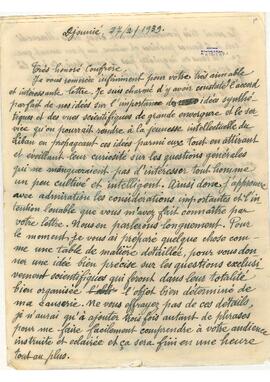 Djounié, 27/2/1929.
Très honoré Confrère
Je vous remercie infiniment pour votre très aimable
et intéressante lettre. Je suis charmé d'y avoir constaté l'accord
parfait de nos idées sur l'importance des idées synthé-
tiques et des vues scientifiques de grande envergure et le ser-
vice qu'on pourrait rendre à la jeunesse intellectuelle du
Liban en propageant ces idées parmi eux tout en attirant
et éveillant leur curiosité sur les questions générales
qui ne manqueraient pas d'intéresser tout homme
un peu cultivé et intelligent. Ainsi donc j'approuve
avec admiration les considérations importantes et l'in
tention louable que vous m'avez fait connaître par
votre lettre. Nous en parlerons longuement. Pour
le moment, je vous ai préparé quelque chose com
me une table de matière détaillée, pour vous don
ner une idée bien précise sur les questions exclusi
vement scientifiques qui feront dans leur totalité
bien organisée l'objet bien déterminé de
ma causerie. Ne vous effrayez pas de ces détails,
je n'aurai qu'à ajouter trois fois autant de phrases
pour me faire facilement comprendre à votre audience
instruite et éclairée et ça sera fini en une heure
tout au plus.